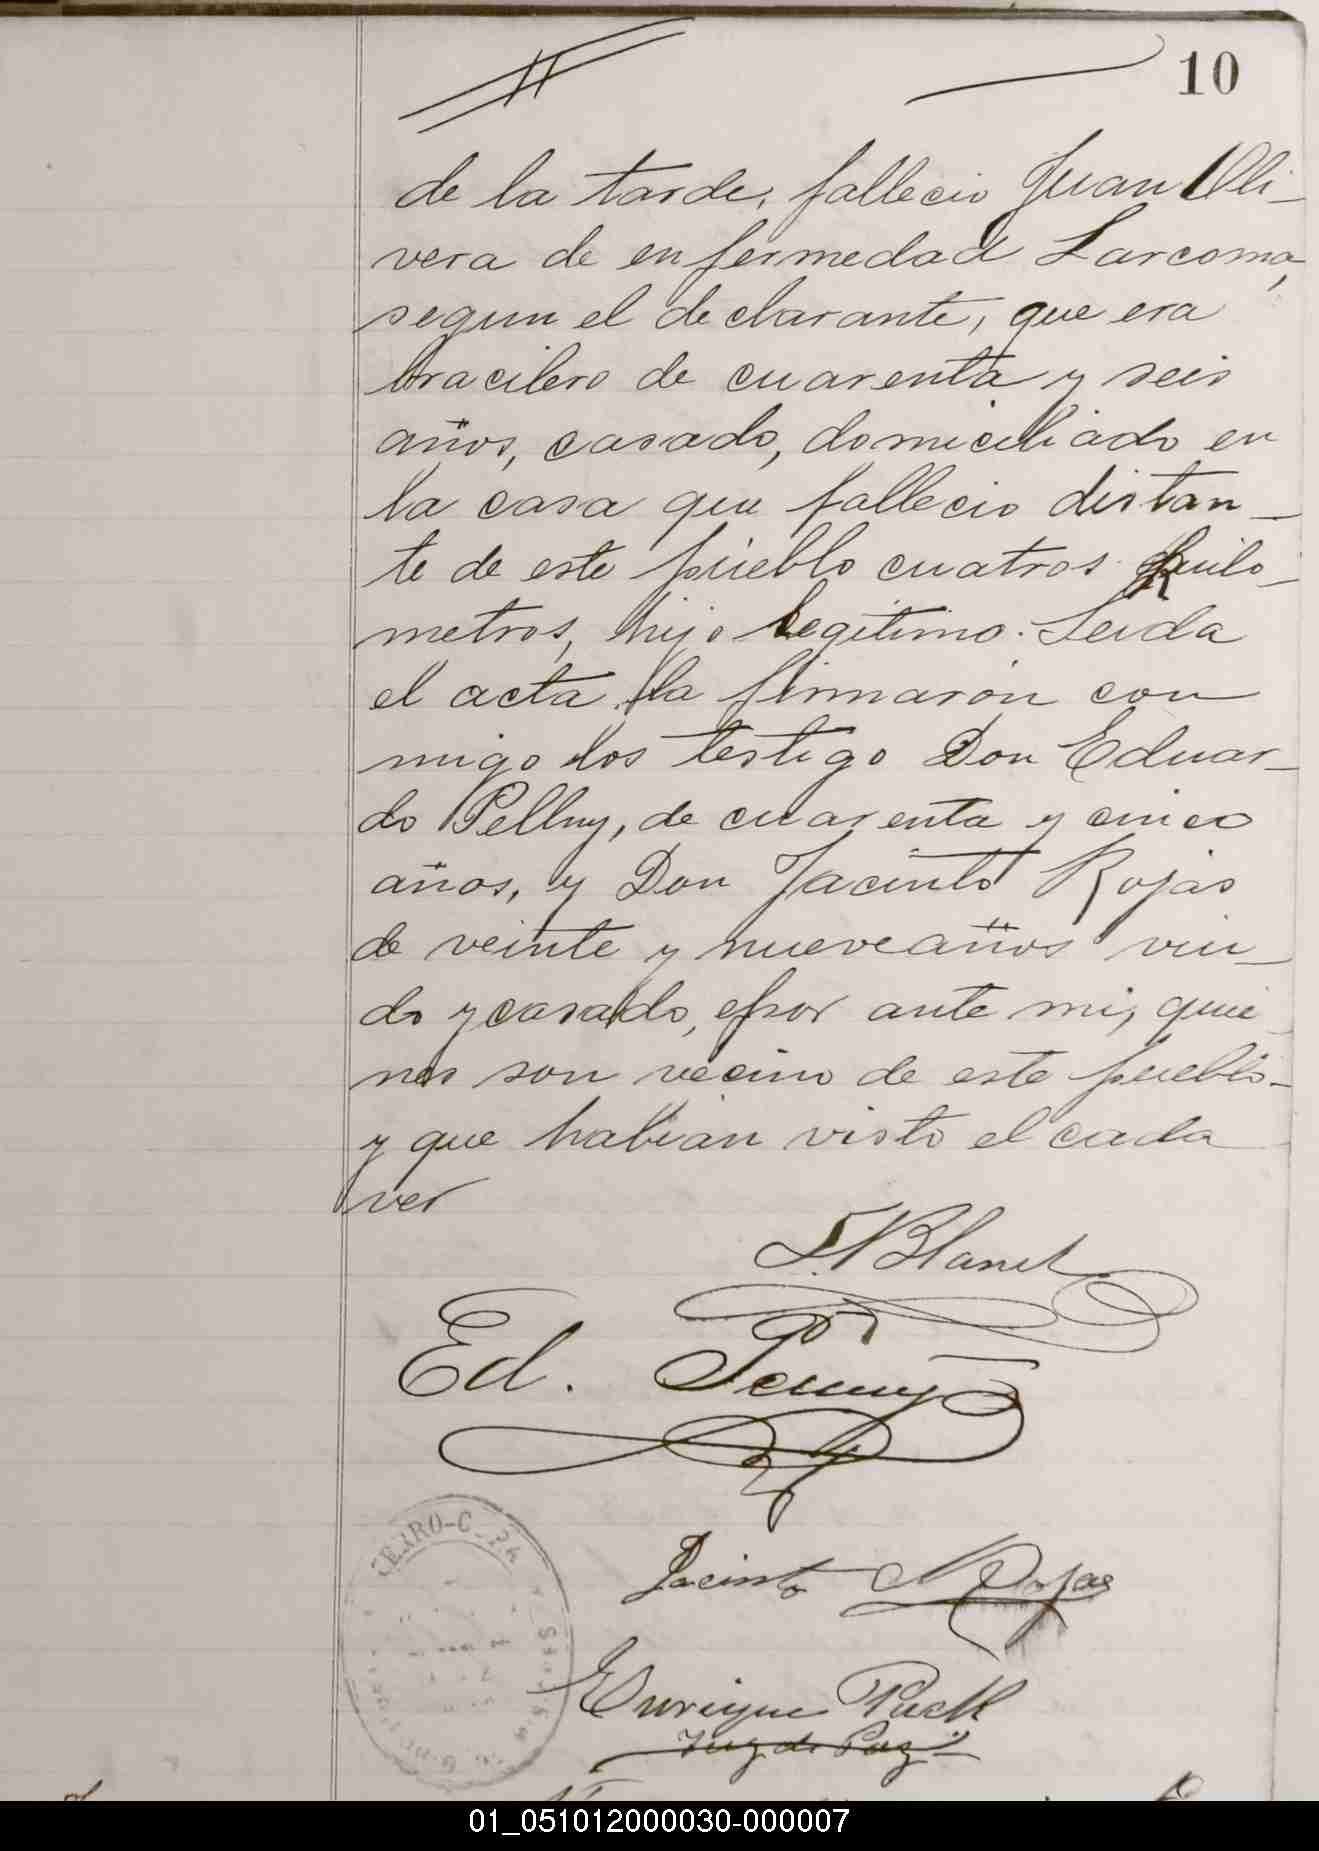 10
de la tarde, fallecio Juan Oli-
vera de enfermedad Sarcoma,
segun el declarante, que era
bracilero de cuarenta y seis
años, casado, domiciliado en
la casa que fallecio distan-
te de este pueblo cuatros kilo-
metros, hijo legitimo. Leida
el acta la firmarón con
migo los testigo Don Eduar-
do Pelluy, de cuarenta y cinco
años, y Don Jacinto Rojas
de veinte y nueve años viu-
do y casado, por ante mi, quie
nes son vecino de este pueblo-
y que habian visto el cada
ver
Blanct
Ed.
Jacinto Rojas
Enrique
Juez de Paz
CERRO-C
01_051012000030-000007